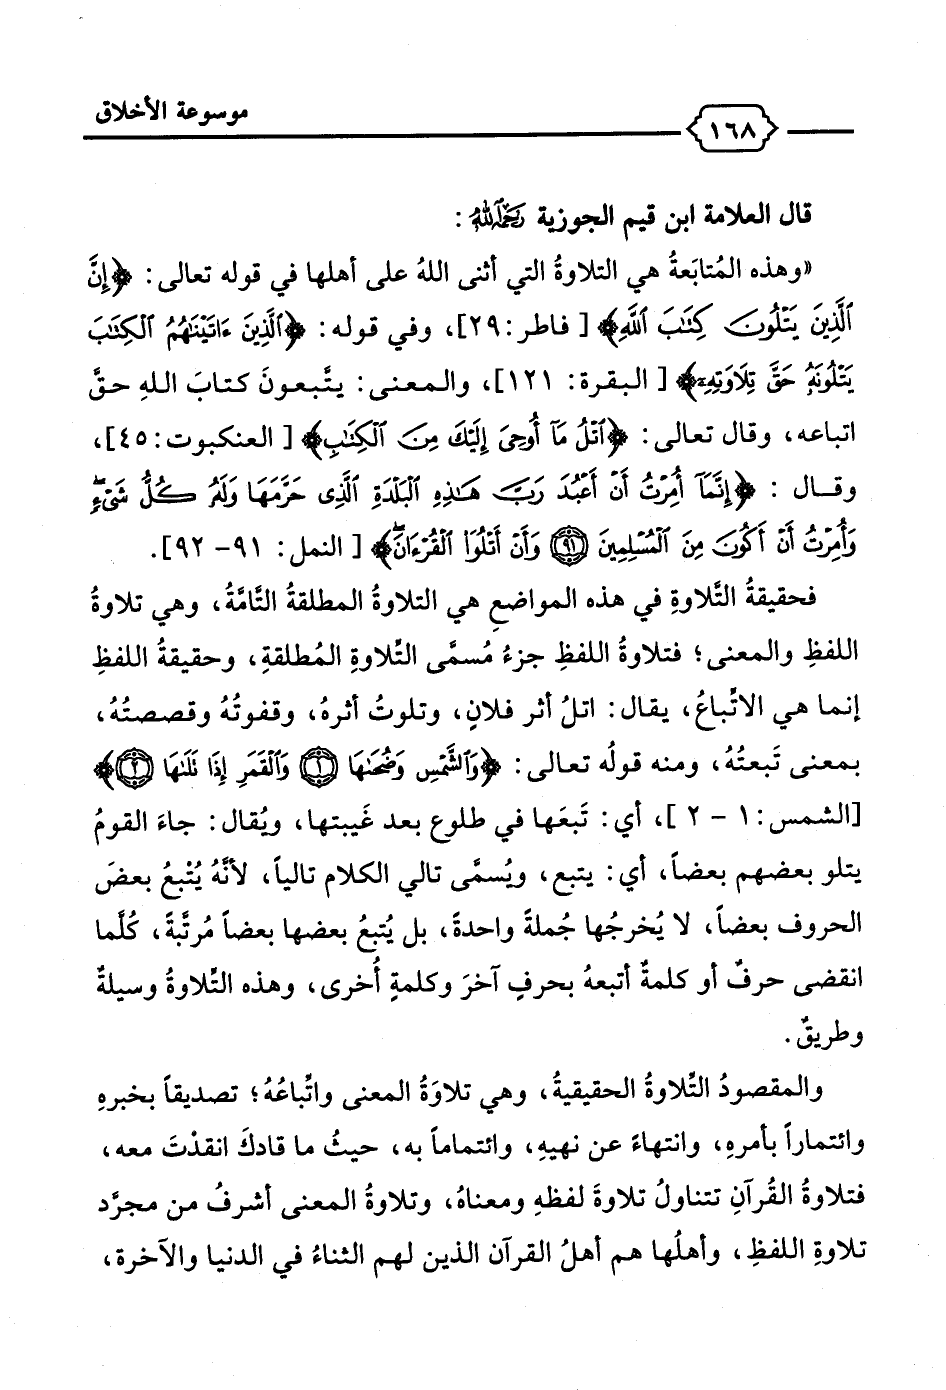 موسوعة الأخلاق
١٦٨
قال العلامة ابن قيم الجوزية رَحِمَهُ اللهُ :
«وهذه المُتابَعةُ هي التلاوةُ التي أثنى اللهُ على أهلها في قوله تعالى: ﴿إِنَّ
ٱلَّذِينَ يَتْلُونَ كِتَٰبَ ٱللَّهِ﴾ [ فاطر:٢٩]، وفي قوله: ﴿ٱلَّذِينَ ءَاتَيْنَٰهُمُ ٱلْكِتَٰبَ
يَتْلُونَهُۥ حَقَّ تِلَاوَتِهِۦ﴾ [ البقرة: ١٢١]، والمعنى: يتَّبعونَ كتابَ اللهِ حقَّ
اتباعه، وقال تعالى: ﴿ٱتْلُ مَآ أُوحِىَ إِلَيْكَ مِنَ ٱلْكِتَٰبِ﴾ [ العنكبوت:٤٥]،
وقال : ﴿إِنَّمَآ أُمِرْتُ أَنْ أَعْبُدَ رَبَّ هَٰذِهِ ٱلْبَلْدَةِ ٱلَّذِى حَرَّمَهَا وَلَهُۥ كُلُّ شَىْءٍۖ
وَأُمِرْتُ أَنْ أَكُونَ مِنَ ٱلْمُسْلِمِينَ ٩١ وَأَنْ أَتْلُوَا۟ ٱلْقُرْءَانَۖ﴾ [ النمل: ٩١- ٩٢].
فحقيقةُ التَّلاوةِ في هذه المواضعِ هي التلاوةُ المطلقةُ التَّامَّةُ، وهي تلاوةُ
اللفظِ والمعنى؛ فتلاوةُ اللفظِ جزءُ مُسمَّى التِّلاوةِ المُطلقةِ، وحقيقةُ اللفظِ
إنما هي الاتِّباعُ، يقال: اتلُ أثر فلانٍ، وتلوتُ أثرهُ، وقفوتُهُ وقصصتُهُ،
بمعنى تَبعتُهُ، ومنه قولُه تعالى: ﴿وَٱلشَّمْسِ وَضُحَىٰهَا ١ وَٱلْقَمَرِ إِذَا تَلَىٰهَا ٢﴾
[الشمس:١ - ٢ ]، أي: تَبعَها في طلوع بعد غَيبتها، ويُقال: جاءَ القومُ
يتلو بعضهم بعضاً، أي: يتبع، ويُسمَّى تالي الكلام تالياً، لأنَّهُ يُتْبعُ بعضَ
الحروف بعضاً، لا يُخرجُها جُملةً واحدةً، بل يُتبعُ بعضها بعضاً مُرتَّبةً، كُلَّما
انقضى حرفٌ أو كلمةٌ أتبعهُ بحرفٍ آخرَ وكلمةٍ أُخرى، وهذه التِّلاوةُ وسيلةٌ
وطريقٌ.
والمقصودُ التِّلاوةُ الحقيقيةُ، وهي تلاوَةُ المعنى واتِّباعُهُ؛ تصديقاً بخبرهِ
وائتماراً بأمرهِ، وانتهاءً عن نهيهِ، وائتماماً به، حيثُ ما قادكَ انقدْتَ معه،
فتلاوةُ القُرآنِ تتناولُ تلاوةَ لفظهِ ومعناهُ، وتلاوةُ المعنى أشرفُ من مجرَّد
تلاوةِ اللفظِ، وأهلُها هم أهلُ القرآن الذين لهم الثناءُ في الدنيا والآخرة،